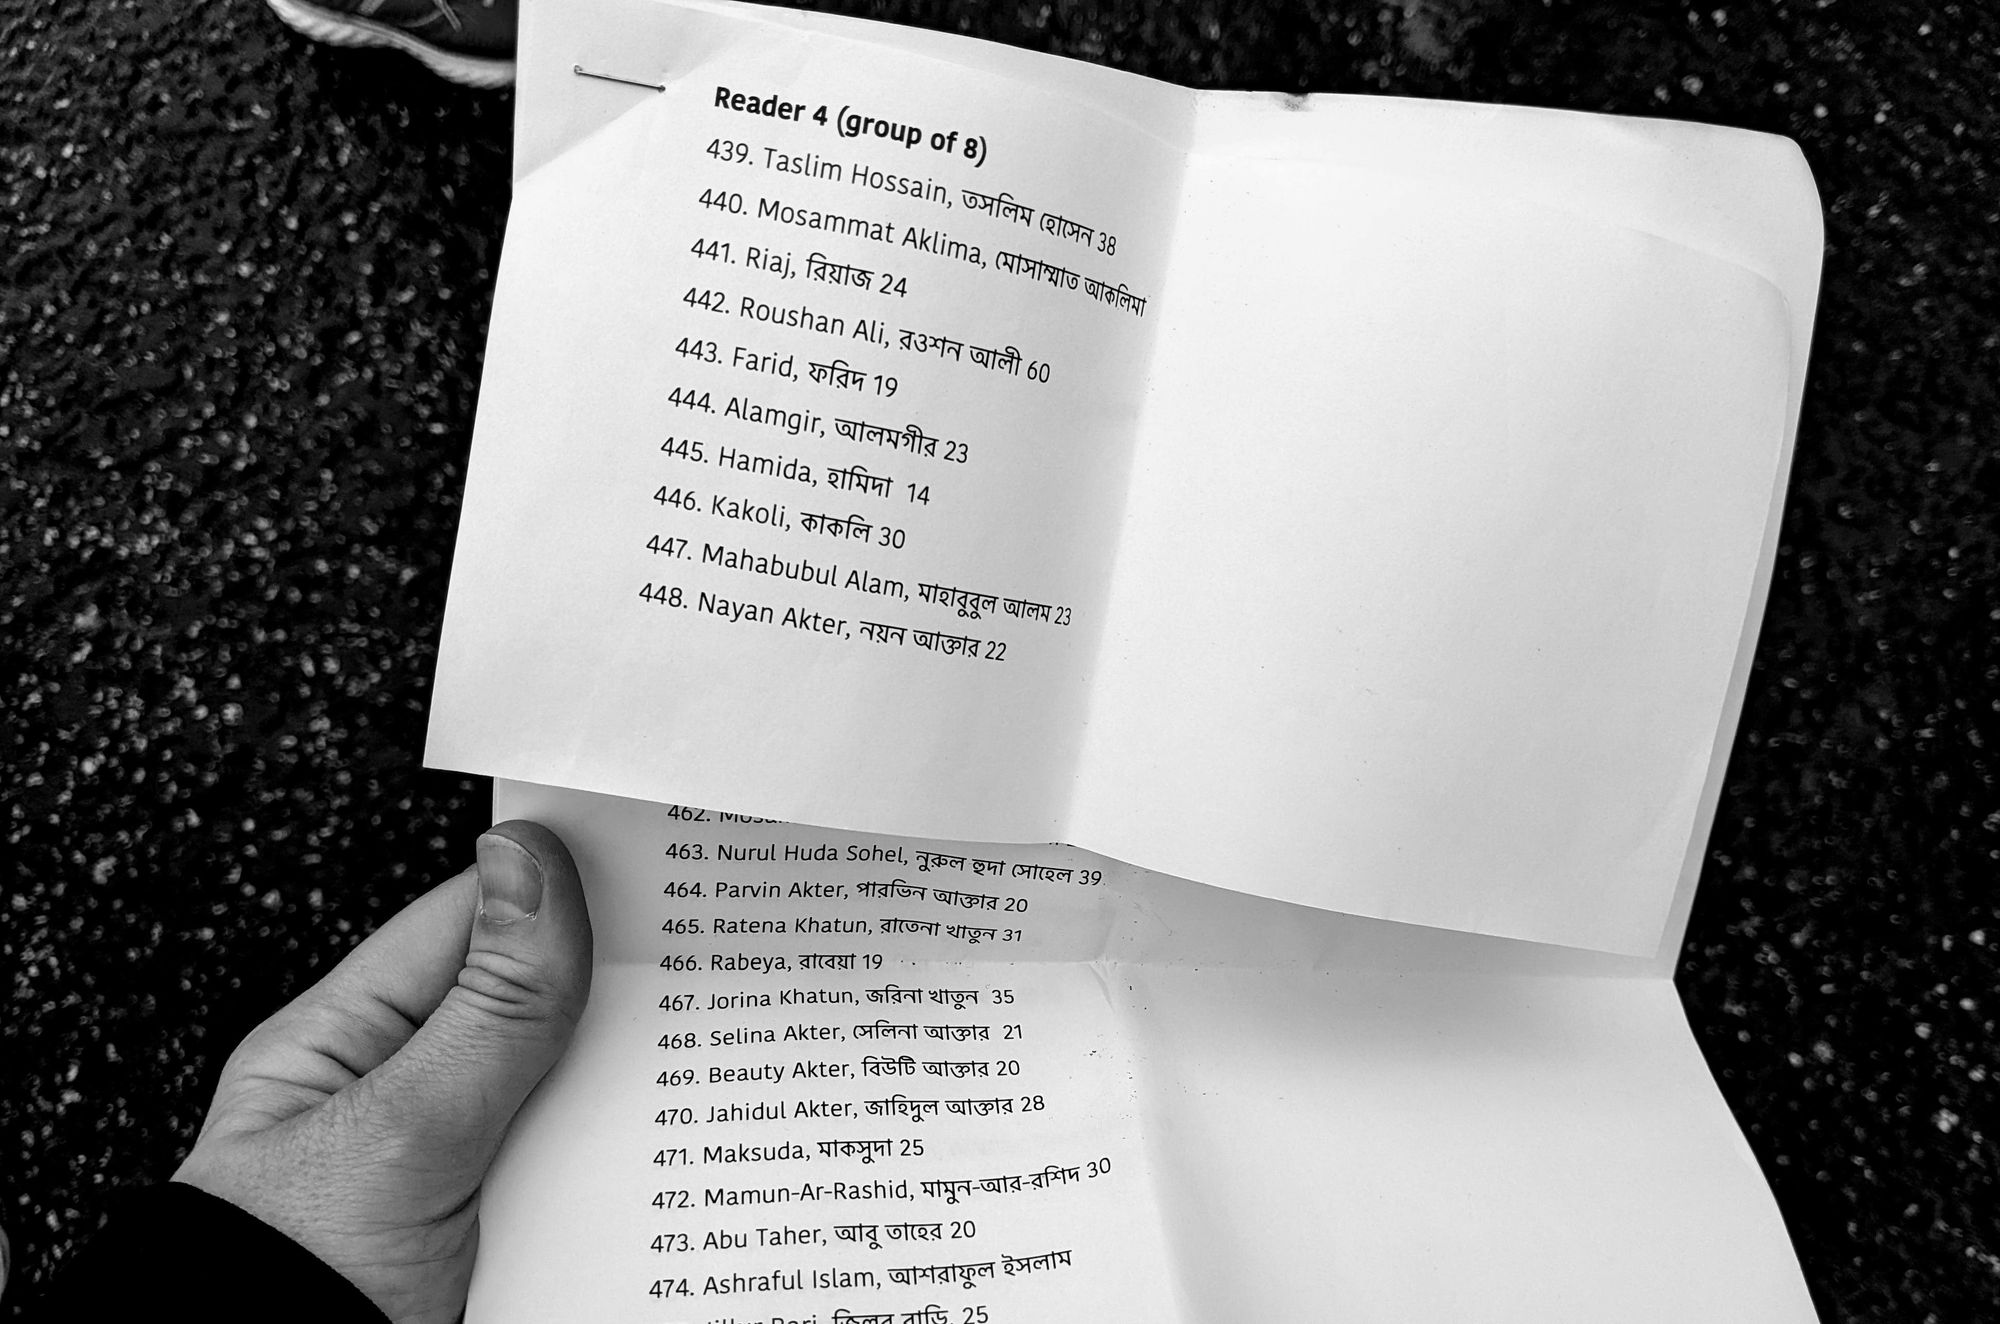 Reader 4 (group of 8)
439. Taslim Hossain, তসলিম হোসেন 38
440. Mosammat Aklima, মোসাম্মাত আকলিমা
441. Riaj, রিয়াজ 24
442. Roushan Ali, রওশন আলী 60
443. Farid, ফরিদ 19
444. Alamgir, আলমগীর 23
445. Hamida, হামিদা 14
446. Kakoli, কাকলি 30
447. Mahabubul Alam, মাহাবুবুল আলম 23
448. Nayan Akter, নয়ন আক্তার 22
462.
463. Nurul Huda Sohel, নুরুল হুদা সোহেল 39
464. Parvin Akter, পারভিন আক্তার 20
465. Ratena Khatun, রাতেনা খাতুন 31
466. Rabeya, রাবেয়া 19
467. Jorina Khatun, জরিনা খাতুন 35
468. Selina Akter, সেলিনা আক্তার 21
469. Beauty Akter, বিউটি আক্তার 20
470. Jahidul Akter, জাহিদুল আক্তার 28
471. Maksuda, মাকসুদা 25
472. Mamun-Ar-Rashid, মামুন-আর-রশিদ 30
473. Abu Taher, আবু তাহের 20
474. Ashraful Islam, আশরাফুল ইসলাম
25